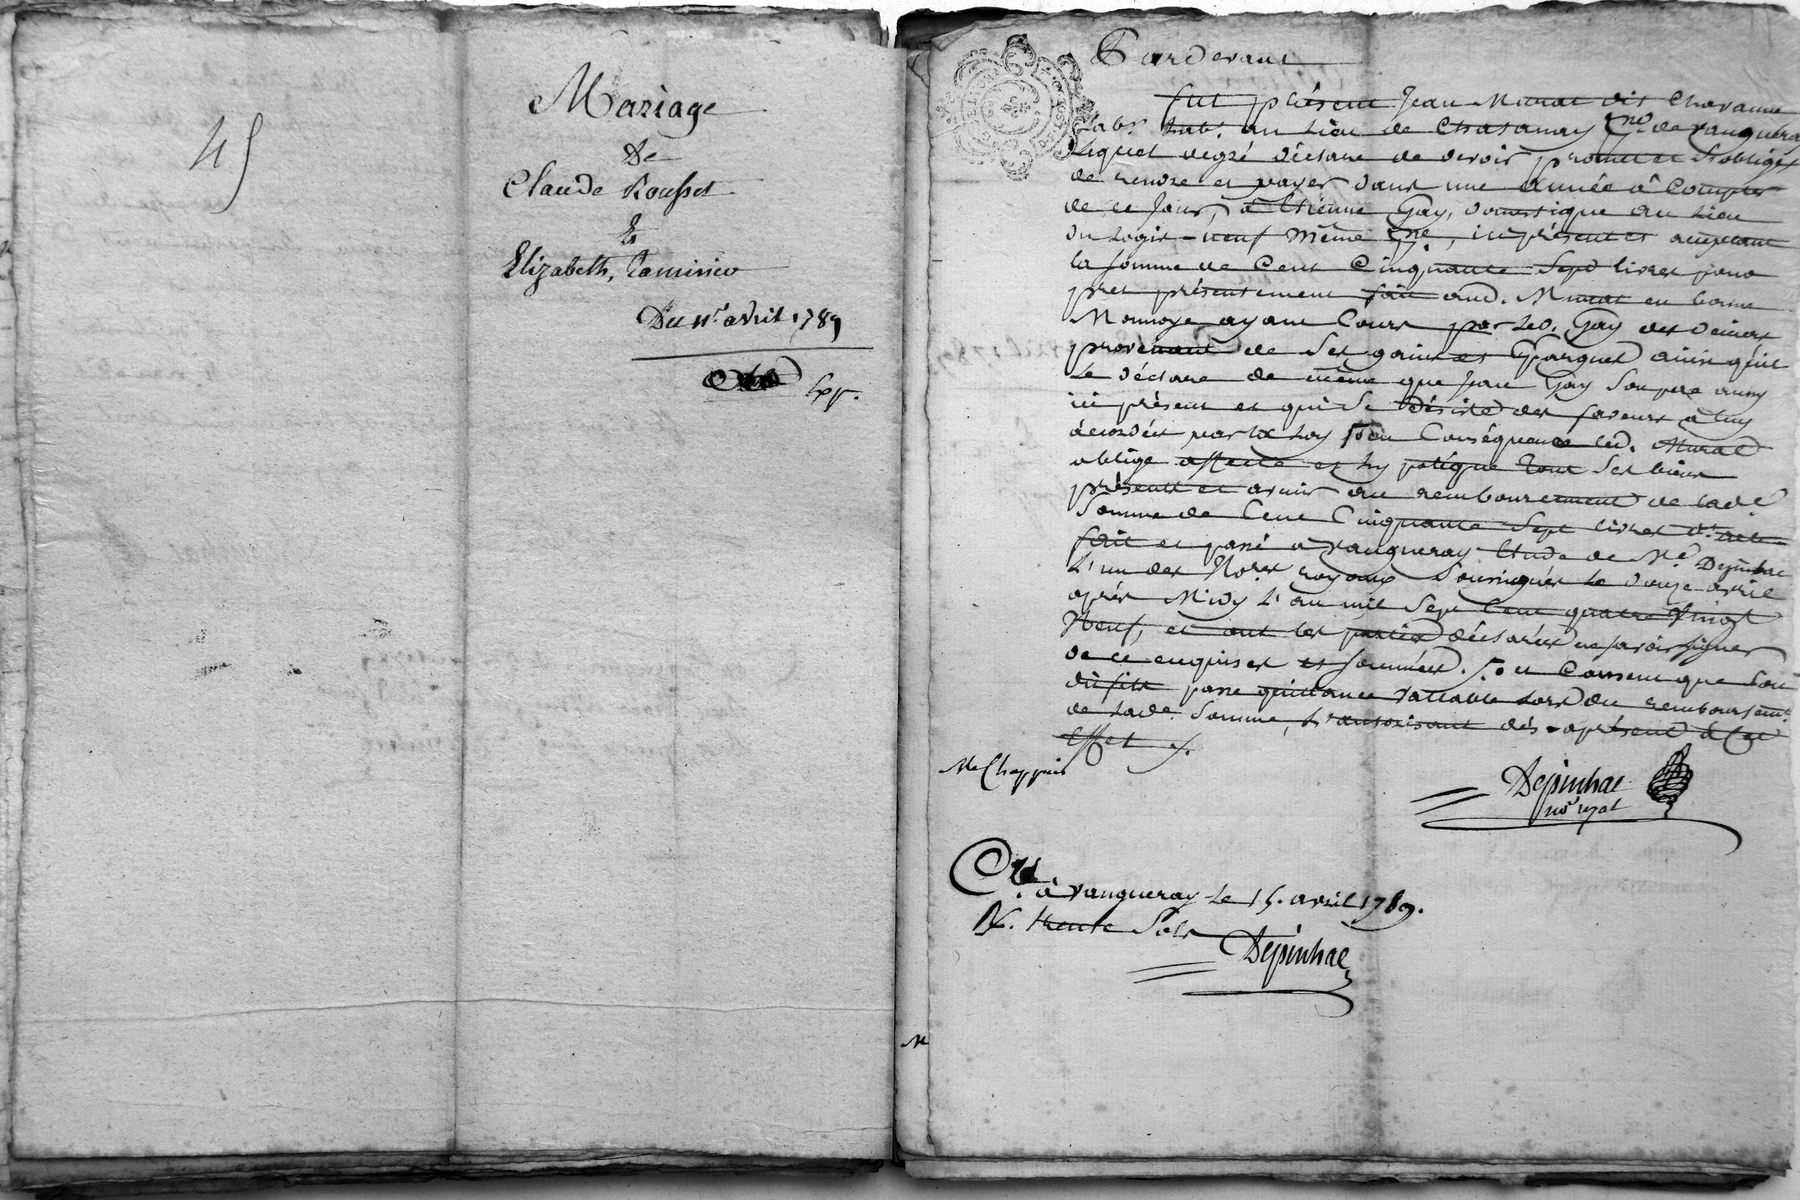 45
Mariage
de
Claude Rousset
&
Elizabeth,
Du 11e avril 1789
Exp.
Pardevant
fut présent Jean Murat dit Chavanne
Labr. habt. au Lieu de Chasanay Gne. de vaugneray
Lequel degré déclare de devoir promet et s'obliger
de rendre et payer dans une année à Compter
de ce Jour, à Etienne Gay, domestique au Lieu
du Logis-neuf même Gne, ici présent et acceptant
la somme de Cent Cinquante Sept livres pour
pret présentement fait aud. Murat en bonne
Monnoye ayant Cours par led. Gay des deniers
provenant de ses gains et Epargnes ainsi qu'il
Le déclare de même que Jean Gay Son pere aussy
ici présent et qui se désiste des faveurs à luy
accordées par la Loy en Conséquence led. Murat
oblige affecte et hypotéque tous Ses biens
présents et avenir au remboursement de lade
Somme de Cent Cinquante Sept livres
fait et passé à vaugneray Etude de Me. Depinhac
L'un des Nores royaux Soussignés le douze avril
après Midy L'an mil Sept Cent quatre vingt
Neuf, et ont les parties déclarées ne savoir signer
de ce enquises et sommées. et Consent que Son
dit fils passe quittance vallable lors du remboursemt.
de lade. Somme, L'autorisant dés-aprésent à Cet
Effet
Me Chappuis
Depinhac
nore royal
Cle
à vaugneray Le 15. avril 1789.
R. trente Sols
Depinhac